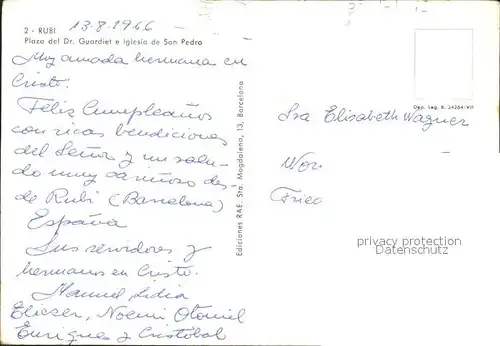 13.8.1966
2 - RUBI
Plaza del Dr. Guardiet e Iglesia de San Pedro
Muy amada hermana en
Cristo.
Feliz Cumpleaños
con ricas bendiciones
del Señor y un salu-
do muy cariñoso des-
de Rubi (Barcelona)
España
Sus servidores y
hermanos en Cristo.
Manuel, Lidia
Eliezer, Noemi Otoniel
Enriques y Cristobal
Ediciones RAE. Sta. Magdalena, 13. Barcelona
Dep. Leg. B. 24264/VII
Sra Elisabeth Wagner
Wor
Fried
privacy protection
Datenschutz